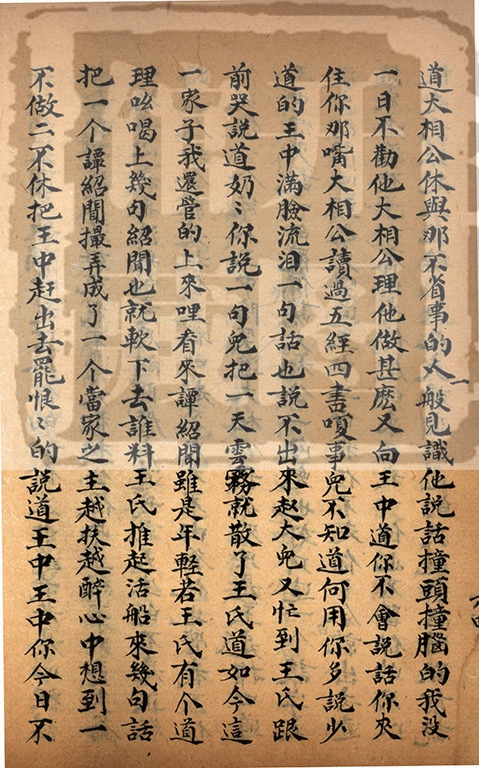 道大相公休與那不省事的人一般見識他説話撞頭撞腦的我没
一日不勸他大相公理他做甚麽又向王中道你不會説話你夾
住你那嘴大相公讀過五經四書嗄事兒不知道何用你多説少
道的王中滿臉流泪一句話也説不出來赵大兒又忙到王氏跟
前哭説道奶〻你説一句兒把一天雲霧就散了王氏道如今這
一家子我還管的上來哩看來譚紹聞雖是年輕若王氏有个道
理吆喝上幾句紹聞也就軟下去誰料王氏推起活船來幾句話
把一个譚紹聞撮弄成了一个當家之主越扶越醉心中想到一
不做二不休把王中赶出去罷恨〻的説道王中王中你今日不